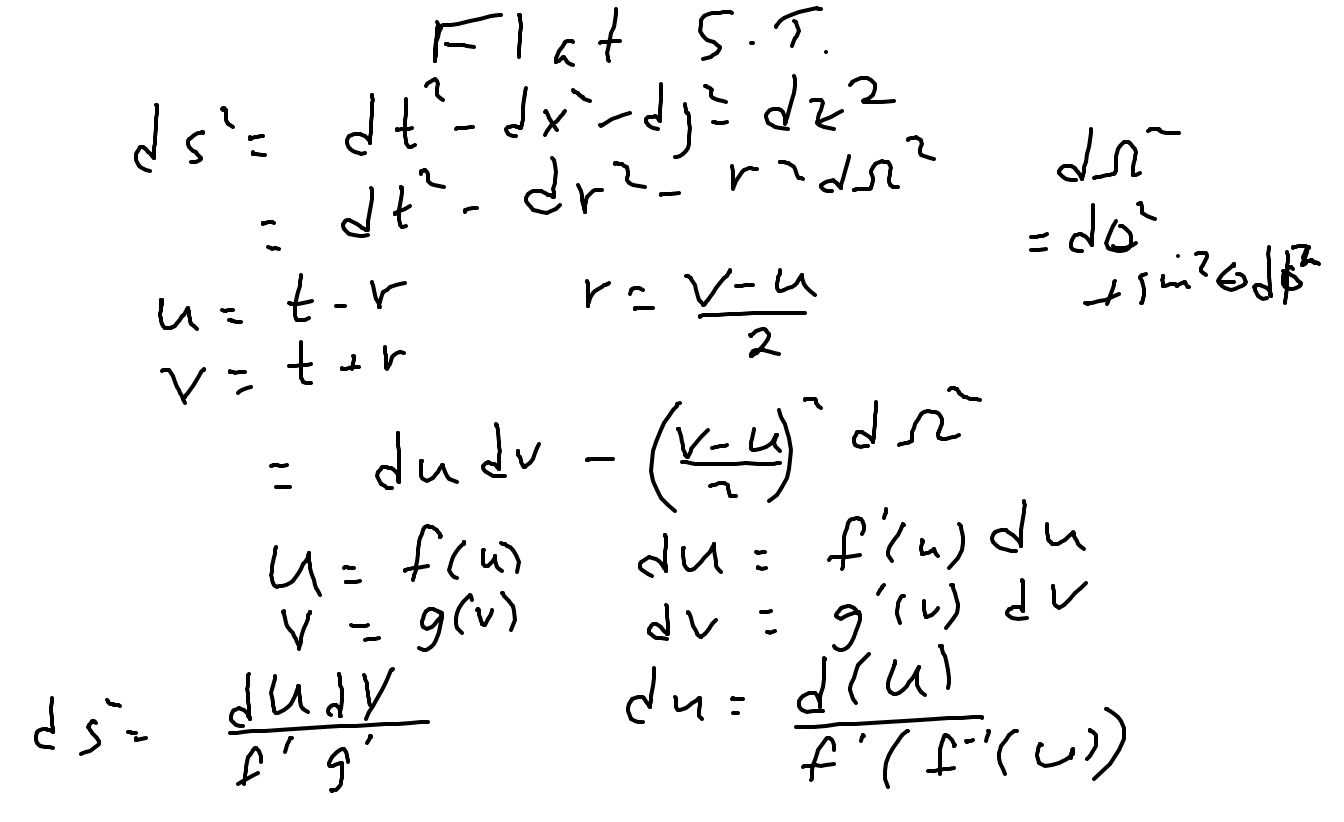 Flat S.T.
ds² = dt² - dx² - dy² - dz²
= dt² - dr² - r² dΩ²
dΩ²
= dθ²
+ sin²θ dϕ²
u = t - r    r = (v - u)/2
v = t + r
= du dv - ((v - u)/2)² dΩ²
U = f(u)    dU = f'(u) du
V = g(v)    dV = g'(v) dv
ds² = dU dV / f' g'    du = d(U) / f'(f⁻¹(U))